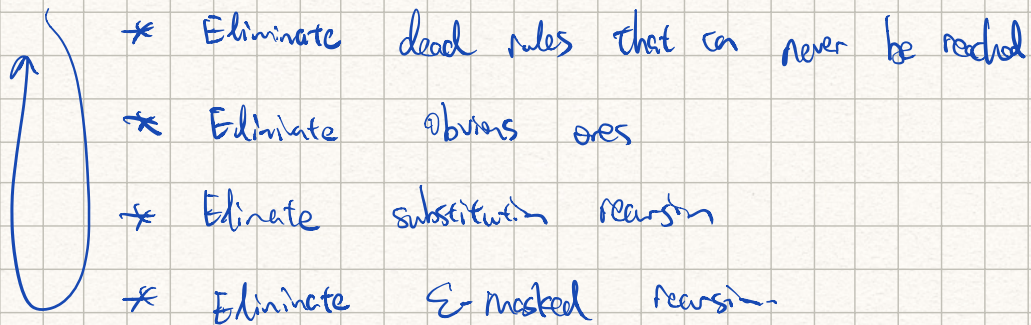 * Eliminate dead rules that can never be reached
* Eliminate obvious ones
* Elinate substitution recursion
* Eliminate ε-masked recursion